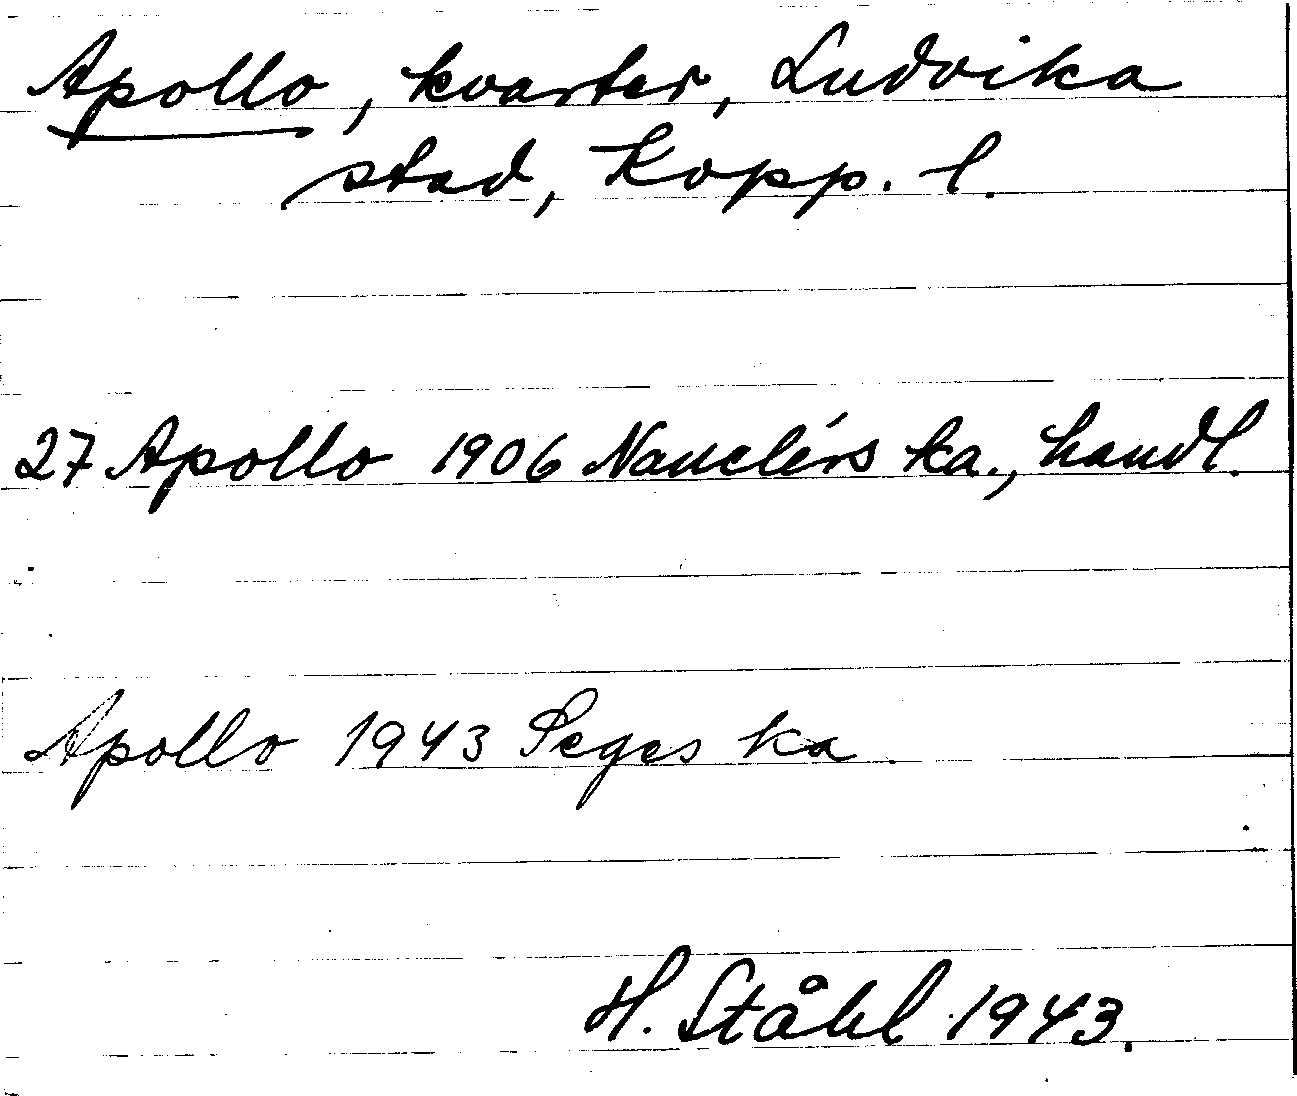 Apollo, kvarter, Ludvika
stad, Kopp. l.
27 Apollo 1906 Nauclérs ka., handl.
Apollo 1943 Seges ka
H. Ståhl 1943.